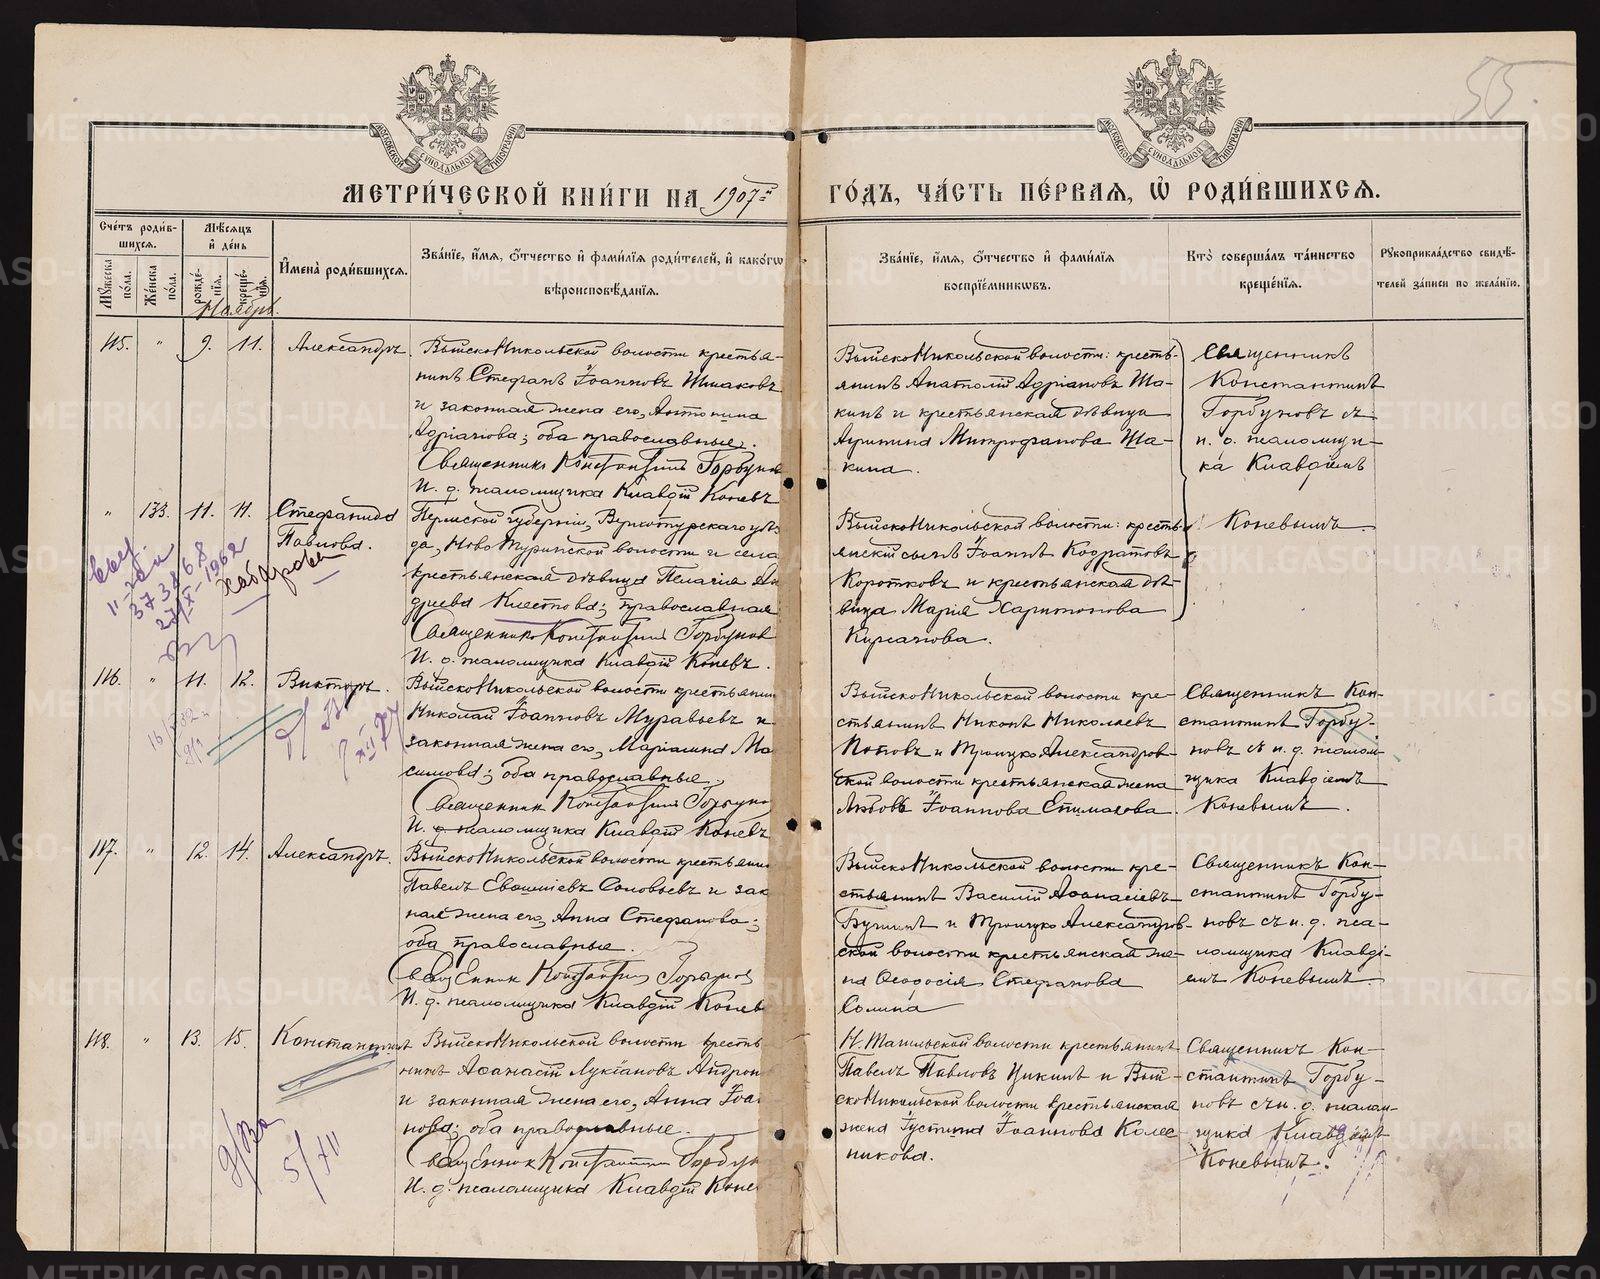 55.
МОСКОВСКОЙ СУНОДАЛЬНОЙ ТИПОГРАФІИ
МОСКОВСКОЙ СУНОДАЛЬНОЙ ТИПОГРАФІИ
МЕТРИ́ЧЕСКОЙ КНИ́ГИ НА 1907й
ГО́ДЪ, ЧА́СТЬ ПЕ́РВАЯ, Ѡ҆ РОДИ́ВШИХСЯ.
Сче́тъ роди́в-
шихся.
Мꙋ́жеска по́ла.
Же́нска по́ла.
Мѣ́сяцъ
и҆ де́нь
рожде́-
нїя.
креще́-
нїя.
Ноябрь.
И҆мена̀ роди́вшихся.
Зва́нїе, и҆́мя, ѻ҆́тчество и҆ фами́лїя роди́телей, и҆ како́гѡ
вѣроисповѣ́данїя.
Зва́нїе, и҆́мя, ѻ҆́тчество и҆ фами́лїя
воспрїе́мникѡвъ.
Кто̀ соверша́лъ та́инство
креще́нїя.
Рꙋкоприкла́дство свидѣ́-
телей за́писи по жела́нїю.
115. " 9. 11. Александръ.
Выйско Никольской волости крестья-
нинъ Стефанъ Іоанновъ
и законная жена его, Антонина
Адріанова; оба православные.
Священникъ Константинъ Горбунов
И. д. псаломщика Клавдій Коневъ
Выйско Никольской волости: кресть-
янинъ Анатолій Адріановъ Ша-
кинъ и крестьянская дѣвица
Митрофанова Ша-
кина.
Священникъ
Константинъ
Горбуновъ съ
и. д. псаломщи-
ка Клавдіемъ
Коневымъ.
" 133. 11. 11. Стефанида
Павлова.
Хабарова
373468
27/XI-1962
Пермской губерніи, Верхотурскаго уѣз-
да, Ново Туринской волости и села
крестьянская дѣвица Пелагія Ан
дреева Клестова; православная
Священникъ Константинъ Горбунов
И. д. псаломщика Клавдій Коневъ.
Выйско Никольской волости: кресть
янскій сынъ Іоаннъ Кодратовъ
Коротковъ и крестьянская дѣ-
вица Марія Харитонова
Кирсанова.
116. " 11. 12. Викторъ.
Выйско Никольской волости крестьянин
Николай Іоанновъ Муравьевъ и
законная жена его, Маріамна Ма
симова; оба православные.
Священник Константинъ Горбунов
И. д. псаломщика Клавдій Коневъ
Выйско Никольской волости кре-
стьянинъ Никонъ Николаевъ
Поповъ и Троицко Александров-
ской волости крестьянская жена
Любовь Іоаннова Епимахова
Священникъ Кон-
стантинъ Горбу-
новъ съ и. д. псалом-
щика Клавдіемъ
Коневымъ.
117. " 12. 14. Александръ.
Выйско Никольской волости крестьянин
Павелъ Соловьевъ и зак
ная жена его, Анна Стефанова;
оба православные.
Священник Константинъ Горбунов
И. д. псаломщика Клавдій Конев
Выйско Никольской волости кре-
стьянинъ Василій Аѳанасіевъ
и Троицко Александров-
ской волости крестьянская же-
на Ѳеодосія Стефанова
Сомина
Священникъ Кон-
стантинъ Горбу-
новъ съ и. д. пса-
ломщика Клавді-
емъ Коневымъ.
118. " 13. 15. Константинъ
5/XII
Выйско Никольской волости кресть
нинъ Аѳанасій Лукіановъ Андрон
и законная жена его, Анна Іоан
нова; оба православные.
Священник Константинъ Горбун
И. д. псаломщика Клавдій Коне
Н. Тагильской волости крестьянинъ
Павелъ Павловъ Цикинъ и Вый-
ско Никольской волости крестьянская
жена Іустина Іоаннова Колес
никова.
Священникъ Кон-
стантинъ Горбу-
новъ съ и. д. псалом-
щика Клавдіемъ
Коневымъ.
METRIKI.GASO-URAL.RU